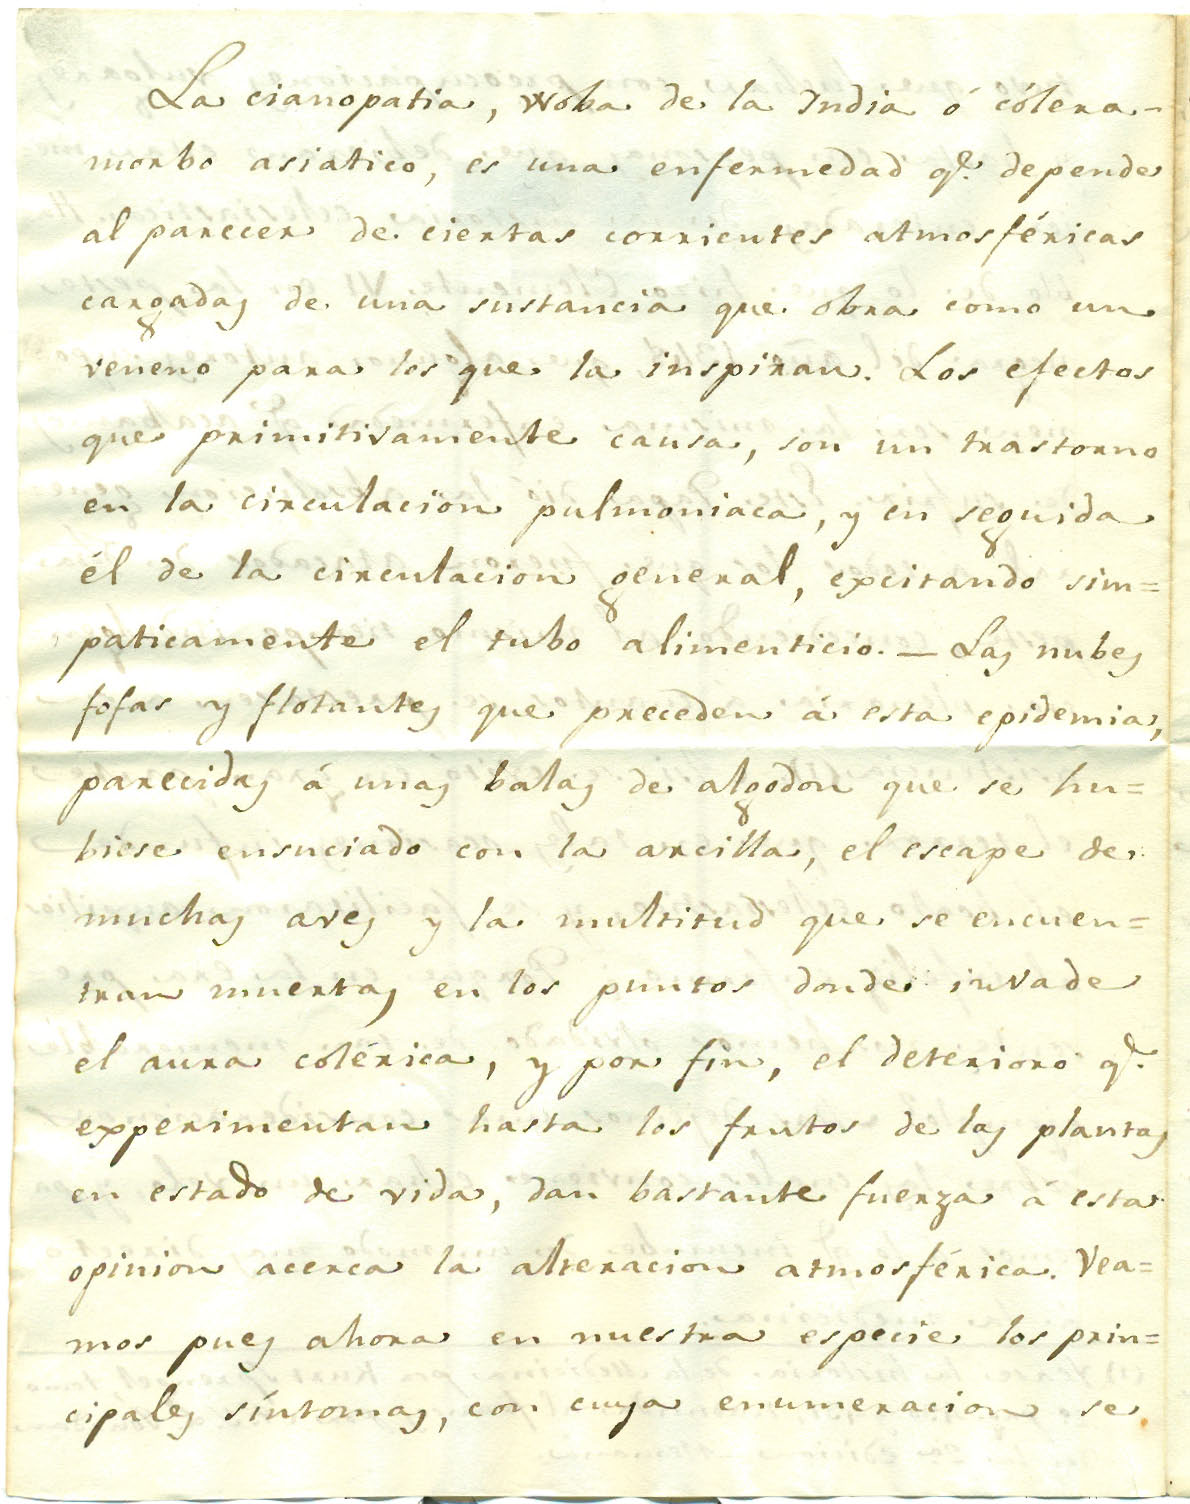 La cianopatia, Woba de la India ó cólera-
morbo asiatico, es una enfermedad qe. depende
al parecer de ciertas corrientes atmosféricas
cargadas de una sustancia que obra como un
veneno para los que la inspiran. Los efectos
que primitivamente causa, son un trastorno
en la circulacion pulmoniaca, y en seguida
él de la circulacion general, excitando sim=
paticamente el tubo alimenticio. — Las nubes
fofas y flotantes que preceden á esta epidemia,
parecidas á unas balas de algodon que se hu=
biese ensuciado con la arcilla, el escape de
muchas aves y la multitud que se encuen=
tran muertas en los puntos donde invade
el aura colérica, y por fin, el deterioro qe.
experimentan hasta los frutos de las plantas
en estado de vida, dan bastante fuerza á esta
opinion acerca la alteracion atmosférica. Vea=
mos pues ahora en nuestra especie los prin=
cipales síntomas, con cuya enumeracion se